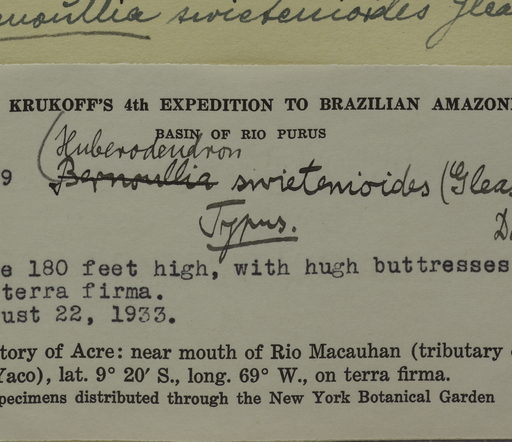 noullia swietenioides Glea
KRUKOFF'S 4th EXPEDITION TO BRAZILIAN AMAZONI
BASIN OF RIO PURUS
(Huberodendron
9 Bernoullia swietenioides (Gleas
Typus.
D
e 180 feet high, with hugh buttresses
terra firma.
ust 22, 1933.
tory of Acre: near mouth of Rio Macauhan (tributary
Yaco), lat. 9° 20′ S., long. 69° W., on terra firma.
pecimens distributed through the New York Botanical Garden